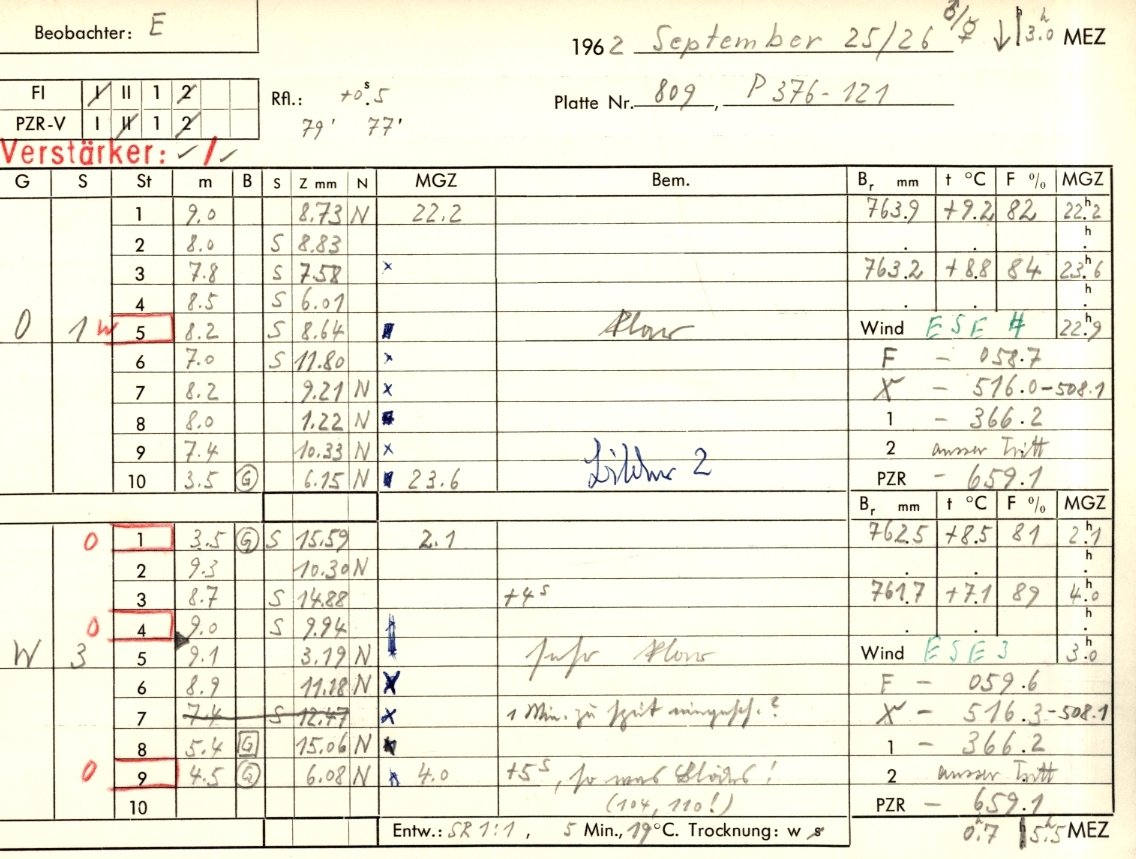 Beobachter: E
1962 September 25/26 ♂/♀ ↓ 3.0ʰ MEZ
FI I II 1 2
Rfl.: +0ˢ.5
Platte Nr. 809, P 376-121
PZR-V I II 1 2
79' 77'
Verstärker: ✓/✓
G S St m B S Z mm N MGZ Bem. Bᵣ mm t °C F % MGZ
1 9.0 8.73 N 22.2 763.9 +9.2 82 22ʰ.2
2 8.0 S 8.83 . . ʰ.
3 7.8 S 7.58 × 763.2 +8.8 84 23ʰ.6
4 8.5 S 6.01 . . ʰ.
O 1 w 5 8.2 S 8.64 klar Wind ESE 4 22ʰ.9
6 7.0 S 11.80 × F - 058.7
7 8.2 9.21 N × X - 516.0-508.1
8 8.0 1.22 N 1 - 366.2
9 7.4 10.33 N × 2 ausser Tritt
10 3.5 G 6.15 N 23.6 2 PZR - 659.1
Bᵣ mm t °C F % MGZ
O 1 3.5 G S 15.59 2.1 762.5 +8.5 81 2ʰ.1
2 9.3 10.30 N . . ʰ.
3 8.7 S 14.88 +4ˢ 761.7 +7.1 89 4ʰ.0
O 4 9.0 S 9.94 . . ʰ.
W 3 5 9.1 3.19 N sehr klar Wind ESE 3 3ʰ.0
6 8.9 11.18 N × F - 059.6
7 7.4 S 12.47 × 1 Min. zu spät eingesch.? X - 516.3-508.1
8 5.4 G 15.06 N 1 - 366.2
O 9 4.5 G 6.08 N 4.0 +5ˢ, so was Blödes! 2 ausser Tritt
10 (104, 110!) PZR - 659.1
Entw.: SR 1:1, 5 Min., 19°C. Trocknung: w s 0ʰ.7 5ʰ.5 MEZ